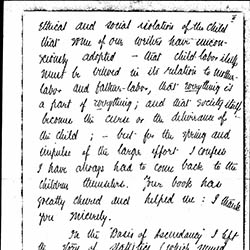 ethical and social isolation of the child
that some of our writers have uncon-
sciously adopted - that child labor itself
must be viewed in its relation to mother-
labor and father-labor, that everything is
a part of everything; and that society shall
become the curse or the deliverance of
the child; - but for the spring and
impulse of the large effort I confess
I have always had to come back to the
children themselves. Your book has
greatly cheered and helped me: I thank
you sincerely.
In the "Basis of Ascendancy" I left
the of statistics (which